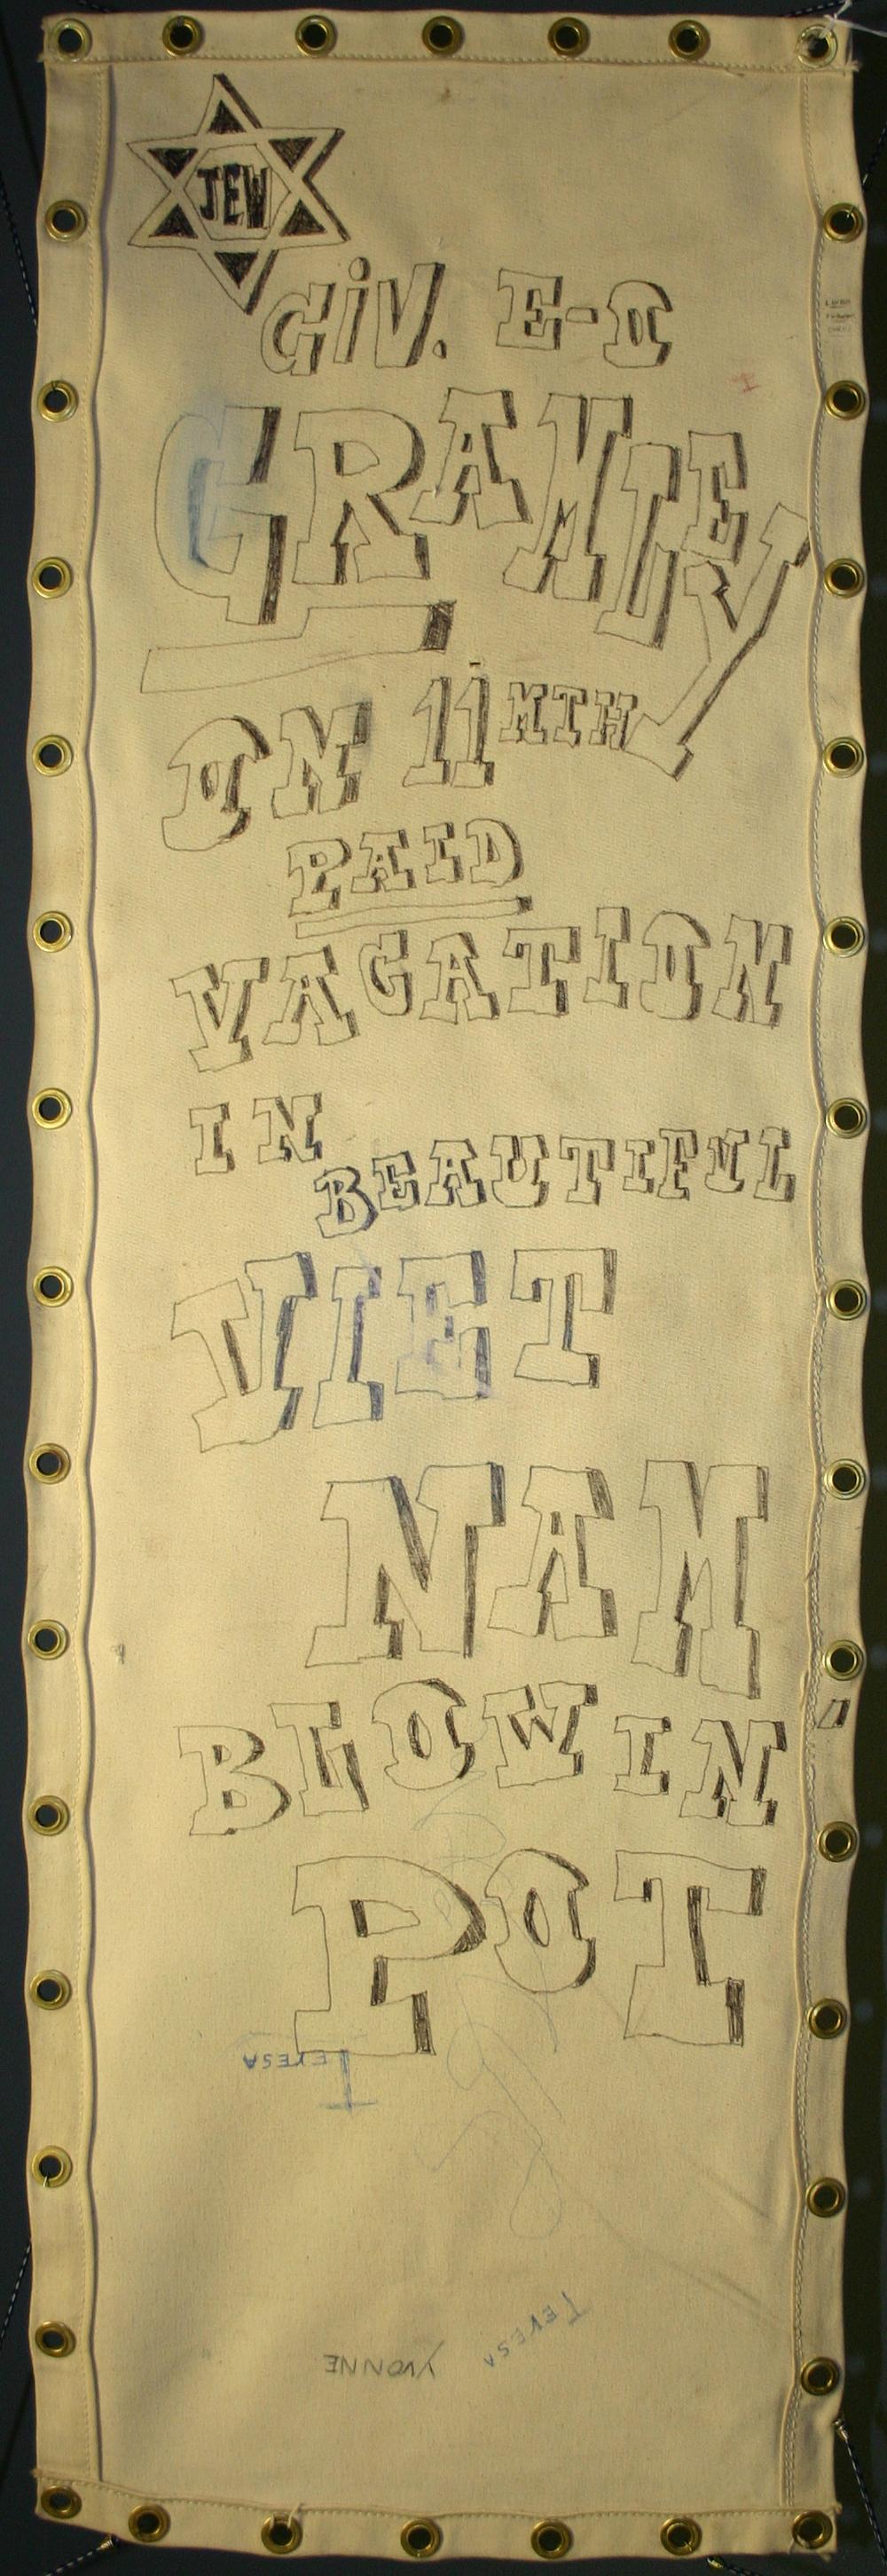 JEW
CIV. E-O
GRAMLEY
ON 11 MTH
PAID
VACATION
IN
BEAUTIFUL
VIET
NAM
BLOWIN'
POT
TERESA
TERESA
YVONNE